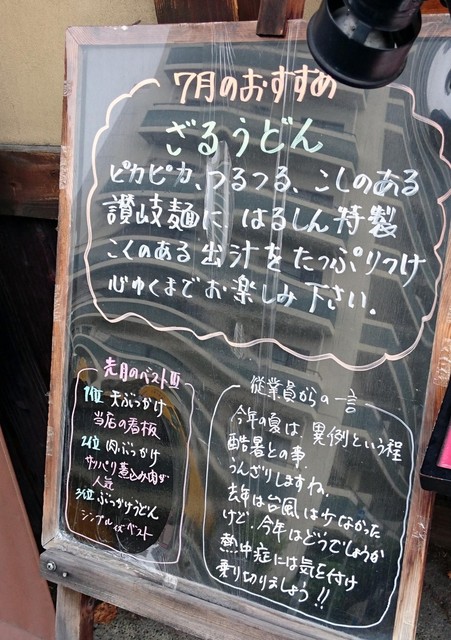 7月のおすすめ
ざるうどん
ピカピカ、つるつる、こしのある
讃岐麺に はるしん特製
こくのある出汁をたっぷりつけ
心ゆくまでお楽しみ下さい。
先月のベストⅢ
1位 天ぶっかけ
当店の看板
2位 肉ぶっかけ
サッパリ煮込み肉が
人気
3位 ぶっかけうどん
シンプルイズベスト
従業員からの一言
今年の夏は、異例という程
酷暑との事.
うんざりしますね.
去年は台風は少なかった
けど、今年はどうでしょうか
熱中症には気を付け
乗り切りましょう!!